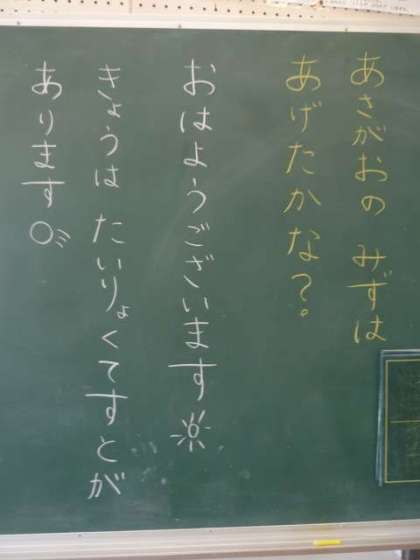 あさがおの みずは
あげたかな?。
おはようございます
きょうは たいりょくてすとが
あります